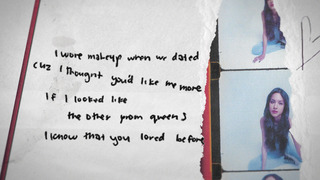 I wore makeup when we dated
Cuz I thought you'd like me more
If I looked like
the other prom queens
I know that you loved before